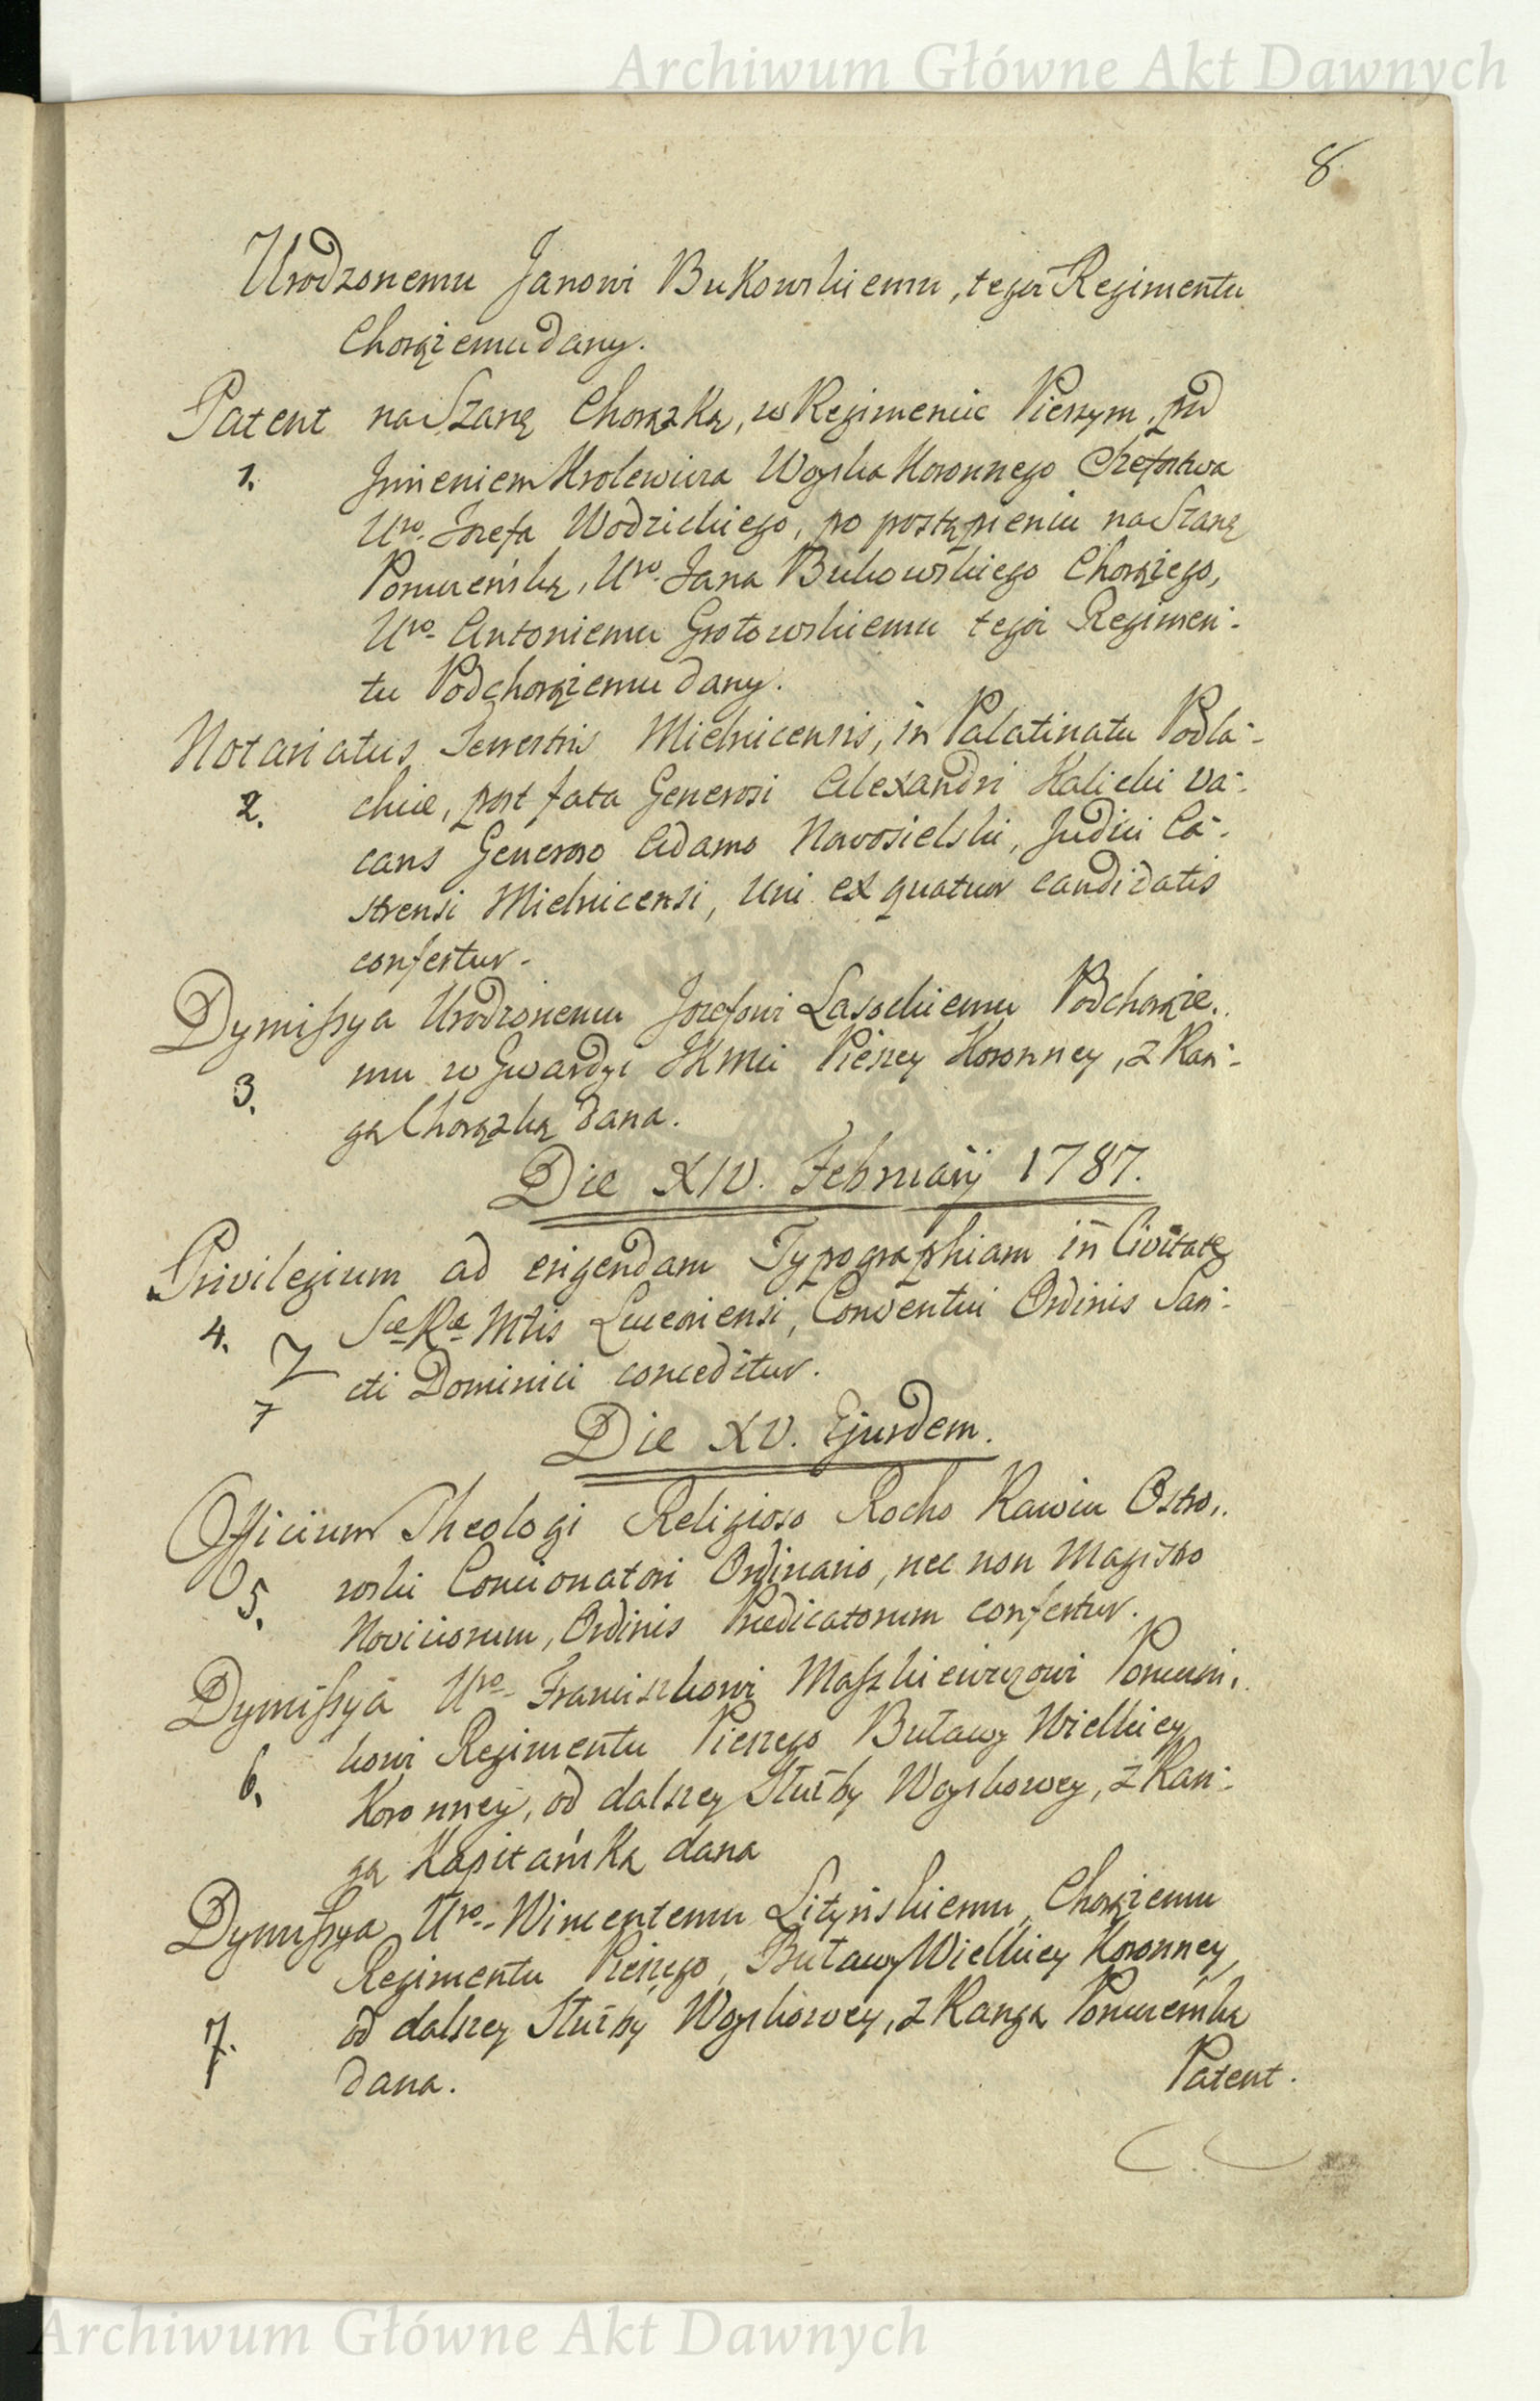 Archiwum Główne Akt Dawnych
8
Urodzonemu Janowi Bukowskiemu, tegoż Regimentu
Chorążemu dany.
Patent na Szarżę Chorążską, w Regimencie Pieszym, pod
1. Jmieniem Krolewicza Woyska Koronnego Szefostwa
Uro. Jozefa Wodzickiego, po postąpieniu na Szarżę
Poruczeńską, Uro. Jana Bukowskiego Chorążego,
Uro. Antoniemu Grotowskiemu tegoż Regimen-
tu Podchorążemu dany.
Notariatus Terrestris Mielnicensis, in Palatinatu Podla-
2. chiæ, post fata Generosi Alexandri Kalicki va-
cans Generoso Adamo Nowosielski, Judici Ca-
strensi Mielnicensi, uni ex quatuor candidatis
confertur.
Dymissya Urodzonemu Jozefowi Lasockiemu Podchorąże-
3. mu w Gwardyi JKMci Pieszey Koronney, z Ran-
gą Chorążską dana.
Die XIV. Februarij 1787.
Privilegium ad erigendam Typographiam in Civitate
4. Sæ Ræ Mtis Luceoriensi, Conventui Ordinis San-
7 cti Dominici conceditur.
Die XV. Ejusdem.
Officium Theologi Religioso Rocho Rawicz Ostro-
5. wski Concionatori Ordinario, nec non Magistro
Noviciorum, Ordinis Prædicatorum confertur.
Dymissya Uro. Franciszkowi Maszkiewiczowi Poruczni-
6. kowi Regimentu Pieszego Buławy Wielkiey
Koronney, od dalszey Służby Woyskowey, z Ran-
gą Kapitańską dana
Dymissya Uro. Wincentemu Lityńskiemu, Chorążemu
Regimentu Pieszego, Buławy Wielkiey Koronney,
7. od dalszey Służby Woyskowey, z Rangą Poruczeńską
dana.
Patent.
Archiwum Główne Akt Dawnych